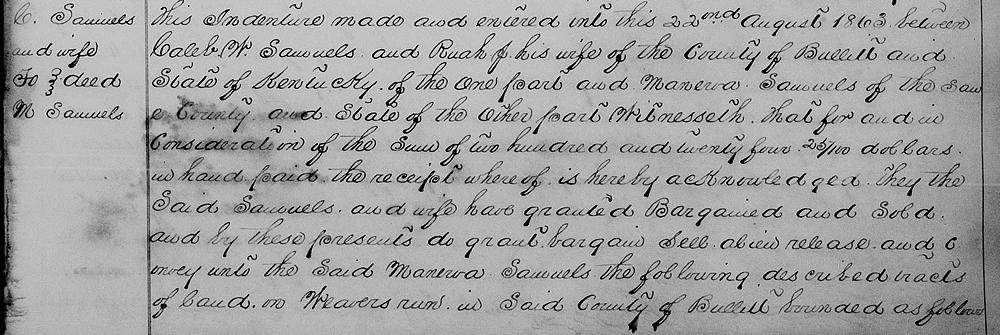 C. Samuels
and wife
To } deed
M Samuels
This Indenture made and entered into this 22nd August 1863 between
Caleb. W. Samuels and Ruah J. his wife of the County of Bullitt and
State of Kentucky. of the One part and Manerva Samuels of the Sam
e County and State of the Other part Witnesseth. that for and in
Consideration of the Sum of two hundred and twenty four 25/100 dollars.
in hand paid the receipt whereof is hereby acknowledged. They the
Said Samuels. and wife have granted Bargained and Sold.
and by these presents do grant. bargain Sell alien release and c
onvey unto the Said Manerva Samuels the following described tracts
of Land on Weavers run. in Said County of Bullitt bounded as follows